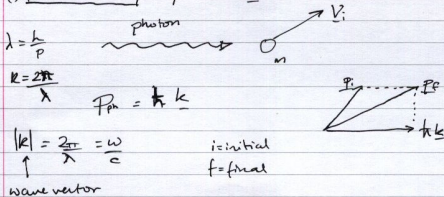 photon
V_i
λ = h/p
m
k = 2π/λ
P_ph = ħ k
p_i
p_f
ħ k
|k| = 2π/λ = ω/c
i = initial
f = final
wave vector